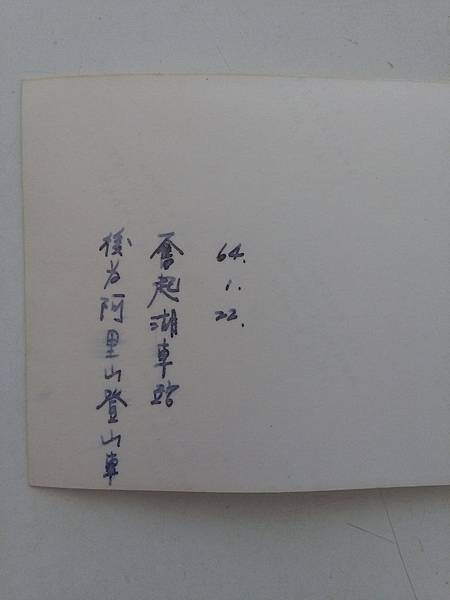 64.1.22.
奮起湖車站
後為阿里山登山車